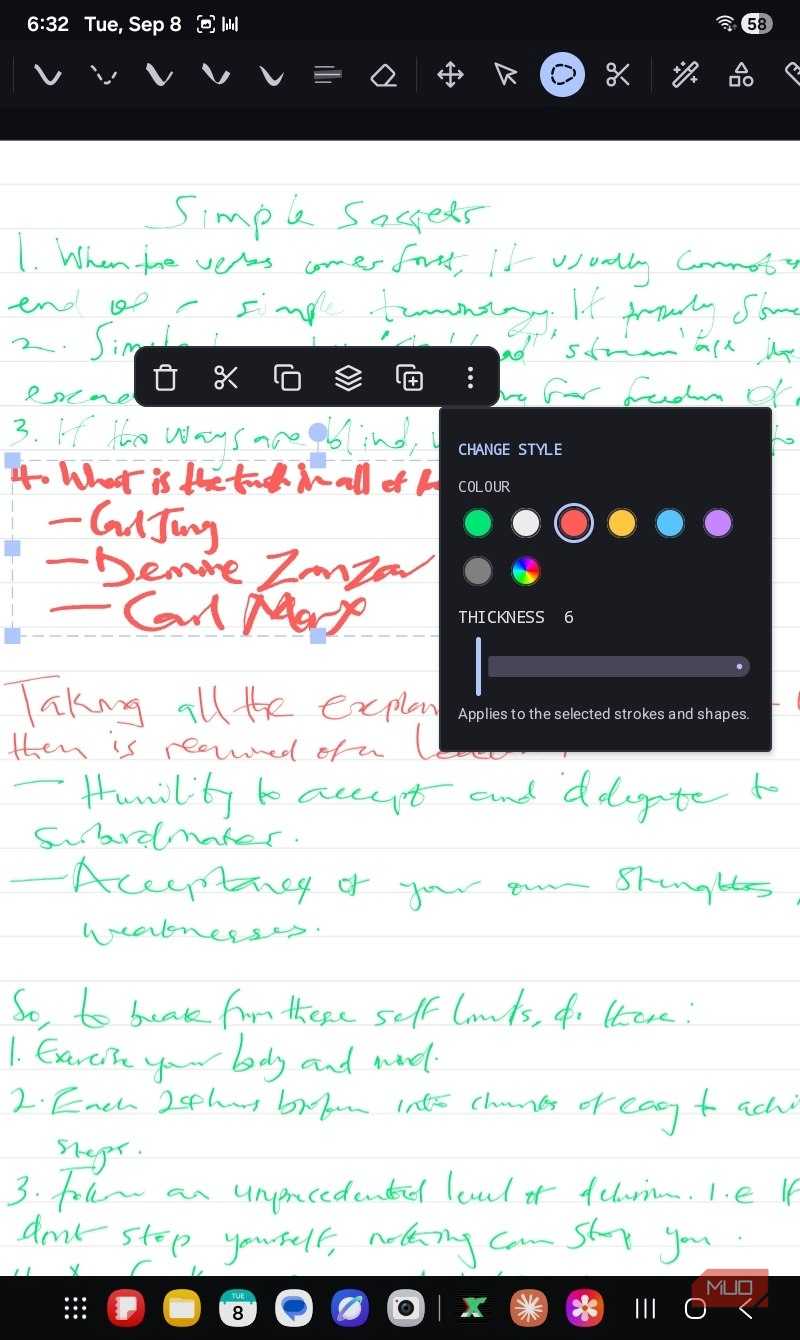 6:32 Tue, Sep 8 58
Simple
1. When the verbs comes first, it usually cannot
end of a simple terminology. It
2. Simple
for freedom of
3. If the ways are blind,
4. What is the truth in all of
CHANGE STYLE
COLOUR
— Carl Jung
— Zanzar
— Carl Marx
THICKNESS 6
Applies to the selected strokes and shapes.
Taking all the explan
then is required of a
— Humility to accept and delegate to
subordinates.
— Acceptance of your own strengths
weaknesses.
So, to break from these self limits, do these:
1. Exercise your body and mind.
2. Each broken into chunks of easy to achi
steps.
3. Follow an unprecedented level of I.E If
dont stop yourself, nothing can stop you.
TUE
8
MUO